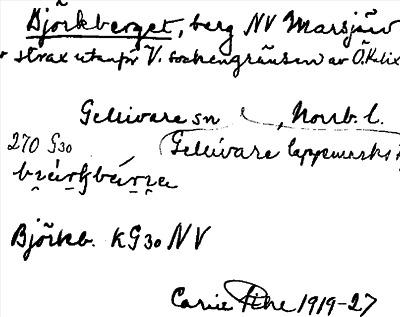 Björkberget, berg NV Marsjärv
strax utanför V. sockengränsen av Ö. Kalix
Gellivare sn, Norrb. l.
270 G30 Gellivare lappmarks
Björkb. KG30 NV
Carin 1919-27